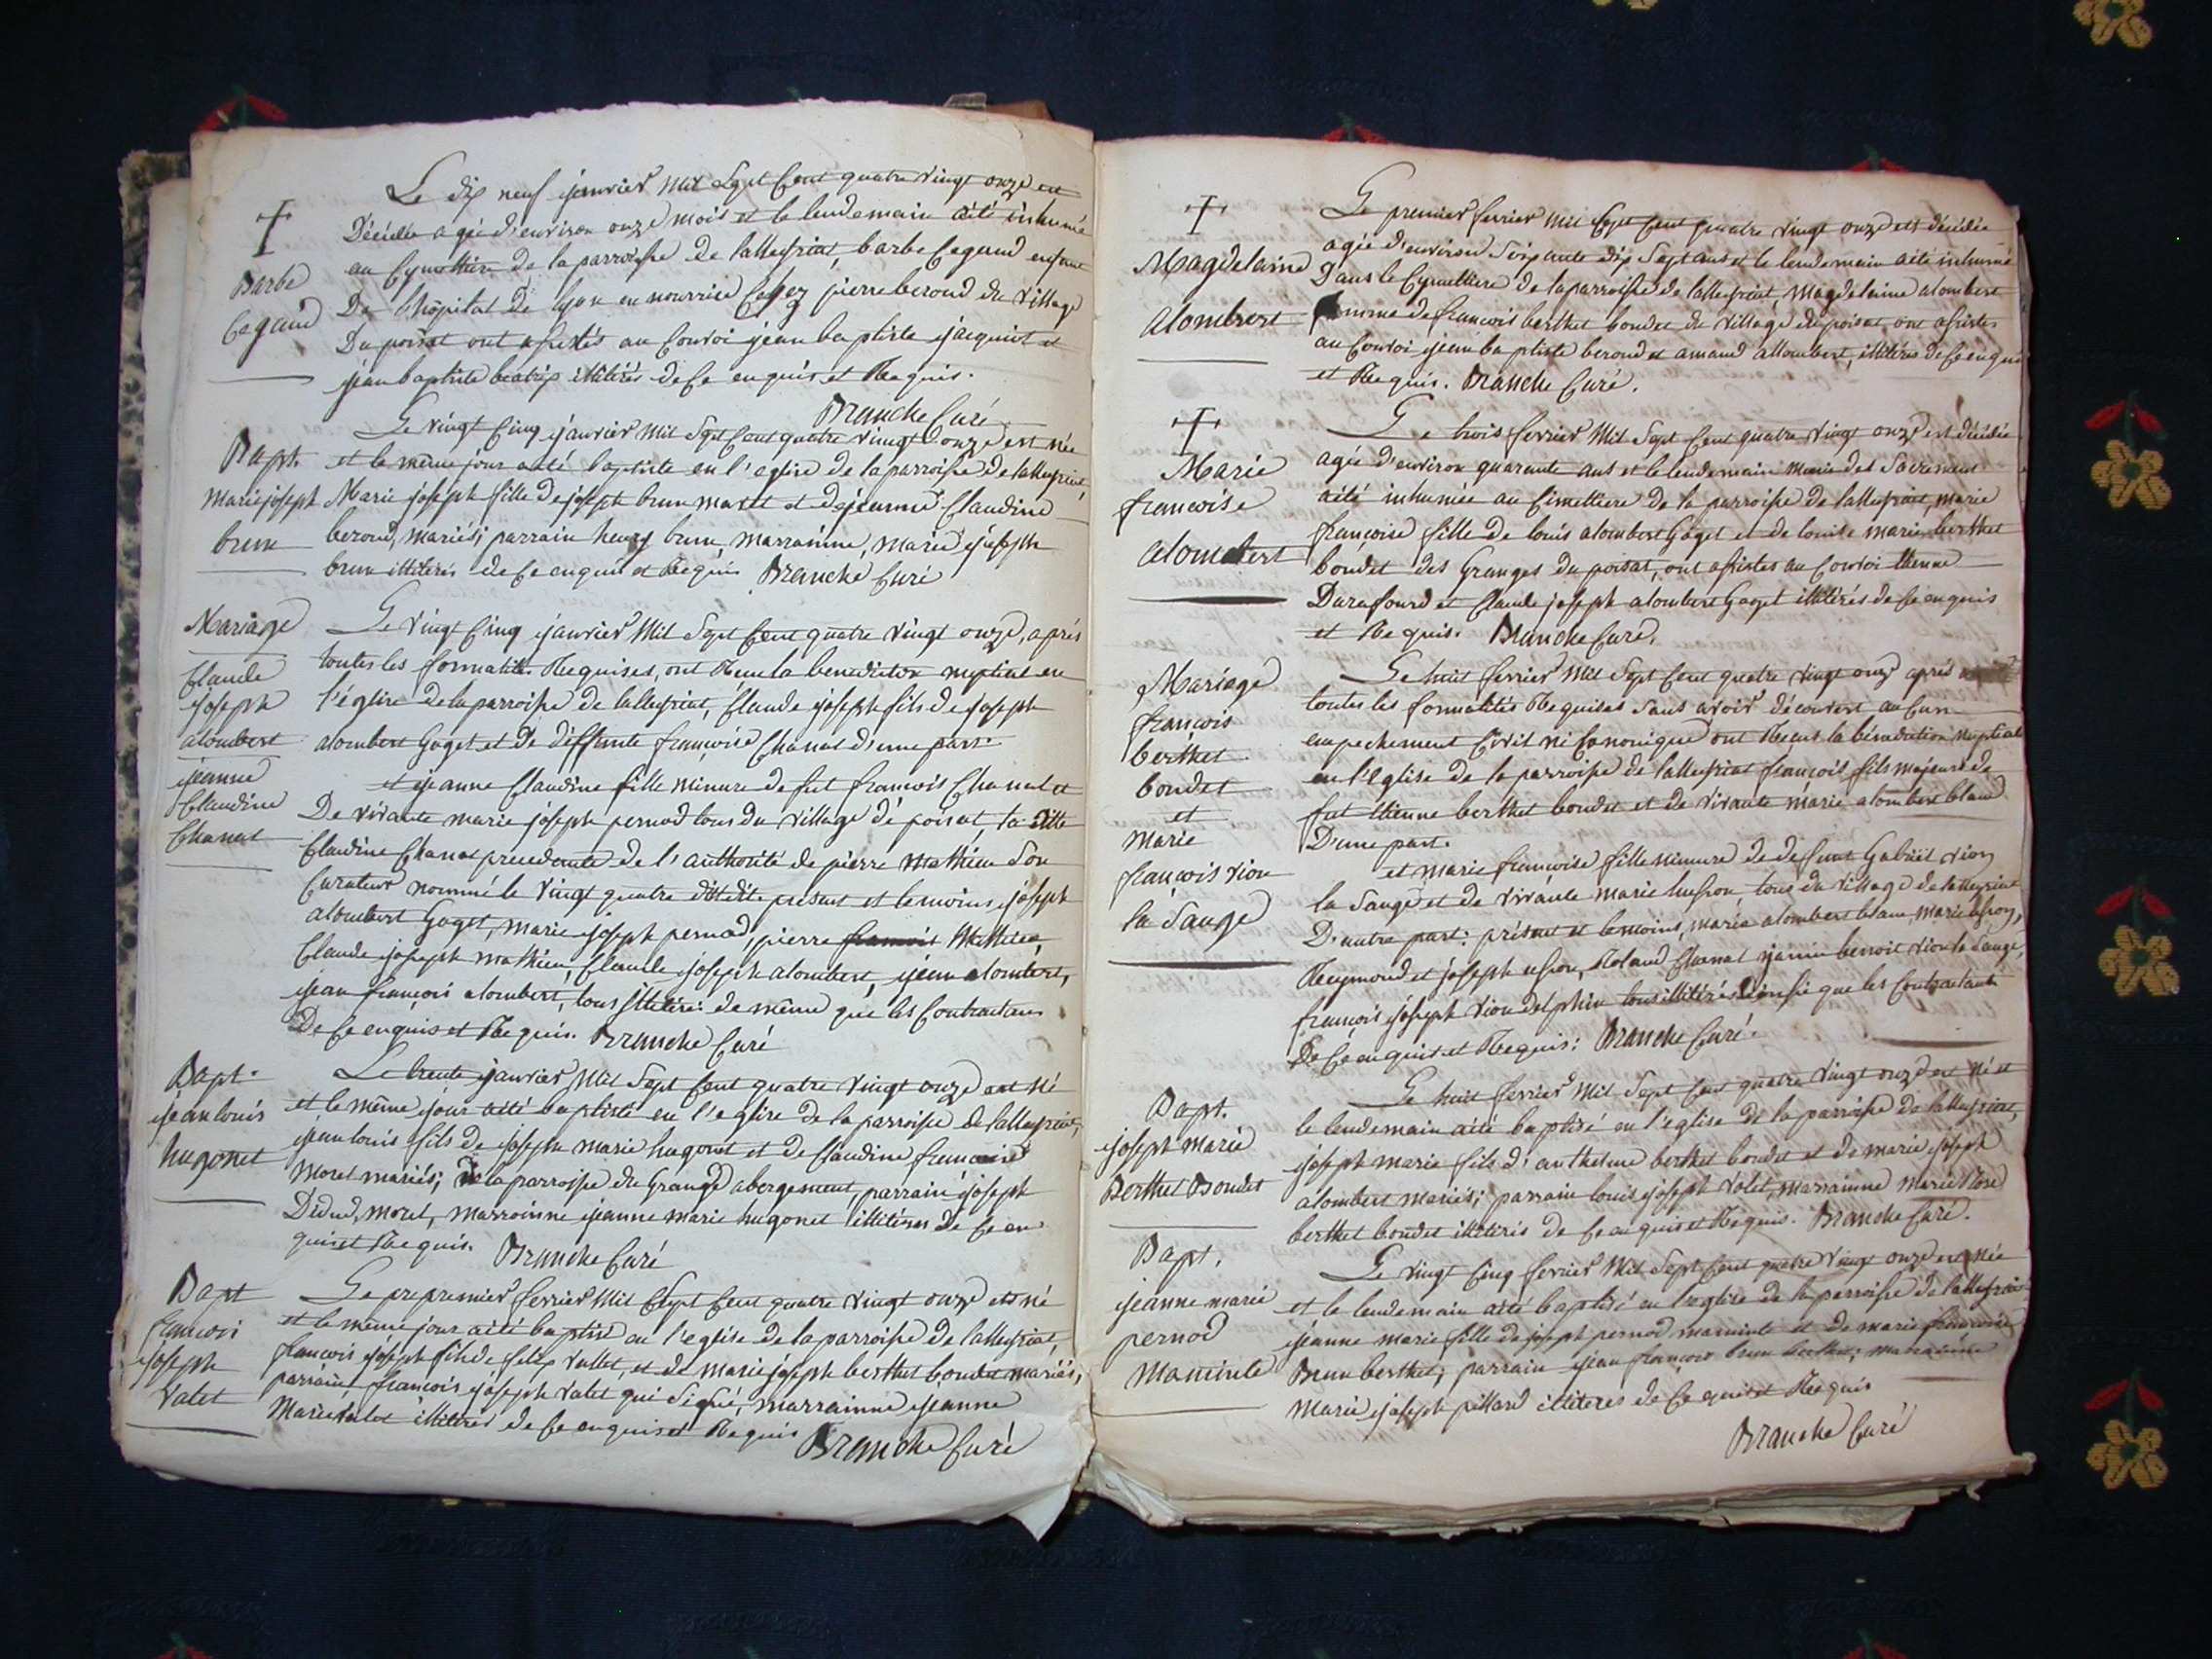 Le dix neuf janvier mil Sept Cent quatre vingt onze est
Décédée agée d'environ onze mois et le lendemain aité inhumé
au Cymettiere de la parroisse de lalleyriat, barbe Cegaud enfant
De l'hôpital de lyon en nourrice Chez pierre beroud du village
Du poisat ont assistés au Convoi jean baptiste jacquiot et
jean baptiste beatrix illitérés de Ce enquis et Requis.
Branche Curé
†
Barbe
Cegaud
Le vingt Cinq janvier mil Sept Cent quatre vingt onze est née
et le même jour aeté baptiste en l'eglise de la parroisse de lalleyriat,
Marie joseph fille de joseph brun et de jeanne Claudine
beroud, mariés; parrain henry brun, marrainne, marie joseph
brun illitérés de Ce enquis et Requis Branche Curé
Bapt.
Marie joseph
brun
Le vingt Cinq janvier mil Sept Cent quatre vingt onze, aprés
toutes les formalités Requises, ont Reçu la benediction nuptiale en
l'église de la parroisse de lalleyriat, Claude joseph fils de joseph
alombert Goget et de deffunte françoise Chanat d'une part.
et jeanne Claudine fille minure de fut francois Chanat et
De vivante marie joseph pernod tous du village de poisat, la ditte
Claudine Chanat precedente de l'authorité de pierre Mathieu Son
Curateur nommé le vingt quatre présent et temoins joseph
alombert Goget, marie joseph pernod, pierre francois Mathieu,
Claude joseph mathieu, Claude joseph alombert, jean alombert,
jean françois alombert, tous illitérés de même que les Contractans
De Ce enquis et Requis. Branche Curé
Mariage
Claude
joseph
alombert
jeanne
Claudine
Chanat
Le trente janvier Mil Sept Cent quatre vingt onze est né
et le même jour aité baptisté en l'eglise de la parroisse de lalleyriat,
jean louis fils de joseph marie hugonet et de Claudine francoise
Moret mariés; de la parroisse du Grand abergement, parrain joseph
moret, marrainne jeanne marie hugonet illitéres de Ce en
quis et Requis. Branche Curé
Bapt.
jean louis
hugonet
Le pre premier fevrier Mil Sept Cent quatre vingt onze est né
et le même jour aité baptisé en l'eglise de la parroisse de lalleyriat,
françois joseph fils de filix vallet, et de marie joseph berthet bondet mariés,
parrain francois joseph valet qui a signé, marrainne jeanne
Marie valet illitérés de Ce enquis et Requis
Branche Curé
Bapt
francois
joseph
valet
Le premier fevrier mil Sept Cent quatre vingt onze est décédée
agée d'environ Soixante dix Sept ans et le lendemain aité inhumé
Dans le Cymettiere de la parroisse de lalleyriat, Magdelaine alombert
femme de francois berthet bondet du village du poisat ont assistés
au Convoi jean baptiste beroud et amand allombert, illitérés de Ce enquis
et Requis. Branche Curé.
†
Magdelaine
alombert
Le trois fevrier Mil Sept Cent quatre vingt onze est décédée
agée d'environ quarante ans et le lendemain munie des Sacrement
aité inhumée au Cimettiere de la parroisse de lalleyriat, marie
françoise fille de louis alombert Goget et de louise marie berthet
bondet des Granges du poisat, ont assistés au Convoi Etienne
Durafourd et Claude joseph alombert Goget illitérés de Ce enquis
et Requis. Branche Curé.
†
Marie
francoise
alombert
Le huit fevrier Mil Sept Cent quatre vingt onze aprés
toutes les formalités Requises Sans avoir découvert aucun
empechement Civil ni Canonique ont Reçus la bénédiction nuptiale
en l'Eglise de la parroisse de lalleyriat francois fils majeure de
fut Etienne berthet bondet et de vivante marie alombert blanc
D'une part.
et marie francoise fille minure de defunt Gabriel vion
la Sauge et de vivante marie tous du village de lalleyriat
D'autre part: présent et temoins, marie alombert blanc, marie
Reymond et joseph Roland Chanat janin benoit vion la Sauge,
francois joseph vion delphin tous illitérés ainsi que les Contractants
De Ce enquis et Requis: Branche Curé.
Mariage
françois
berthet
bondet
et
Marie
françois vion
la Sauge
Le huit fevrier Mil Sept Cent quatre vingt onze est né et
le lendemain aité baptisé en l'eglise de la parroisse de lalleyriat,
joseph marie fils d'anthelme berthet bondet et de marie joseph
alombert mariés; parrain louis joseph valet, marrainne marie Rose
berthet bondet illitérés de Ce enquis et Requis. Branche Curé.
Bapt.
joseph marie
Berthet Bondet
Le vingt Cinq fevrier Mil Sept Cent quatre vingt onze est née
et le lendemain aité baptisé en l'eglise de la parroisse de lalleyriat
jeanne marie fille de joseph pernod maminte et de marie francoise
Brun berthet; parrain jean françois brun berthet; marrainne
Marie joseph pilland illiteres de Ce enquis et Requis
Branche Curé
Bapt.
jeanne marie
pernod
maminte